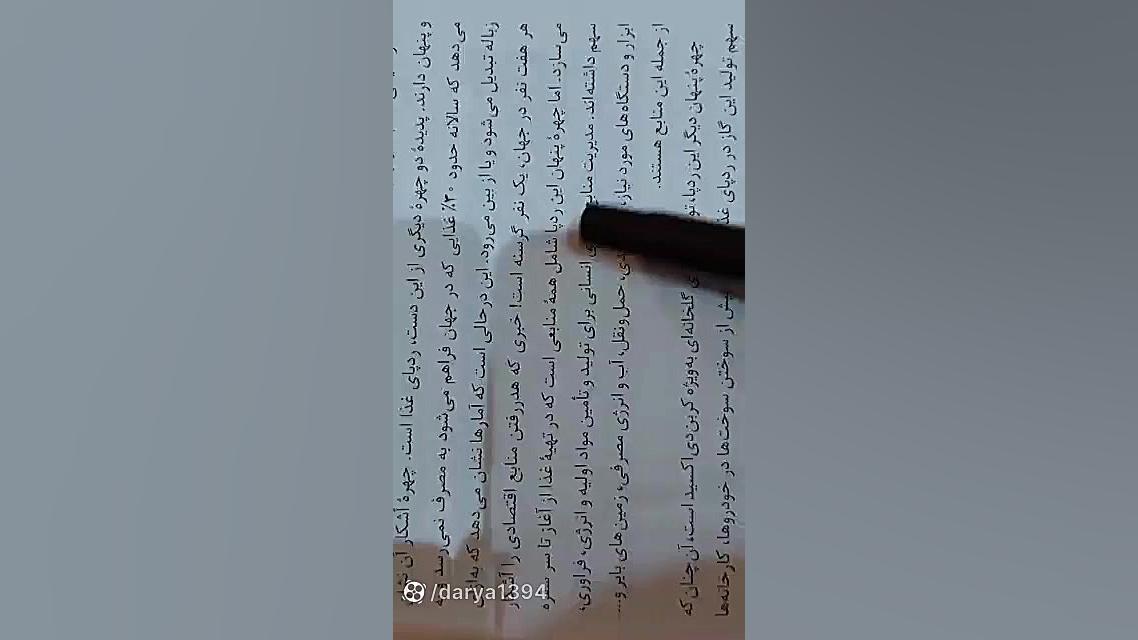 و پنهان دارند. پدیدهٔ دو چهرهٔ دیگری از این دست، ردپای غذا است. چهرهٔ آشکار آن نشان
می‌دهد که سالانه حدود ۳۰٪ غذایی که در جهان فراهم می‌شود به مصرف نمی‌رسد
زباله تبدیل می‌شود و یا از بین می‌رود. این درحالی است که آمارها نشان می‌دهد که به‌ازای
هر هفت نفر در جهان، یک نفر گرسنه است! خبری که هدررفتن منابع اقتصادی را آشکار
می‌سازد. اما چهرهٔ پنهان این ردپا شامل همهٔ منابعی است که در تهیهٔ غذا از آغاز تا سر سفره
سهم داشته‌اند. مدیریت منابع انسانی برای تولید و تأمین مواد اولیه و انرژی، فراوری،
ابزار و دستگاه‌های مورد نیاز، حمل‌ونقل، آب و انرژی مصرفی، زمین‌های بایر و...
از جمله این منابع هستند.
چهرهٔ پنهان دیگر این ردپا، گلخانه‌ای به‌ویژه کربن‌دی‌اکسید است، آن چنان که
سهم تولید این گاز در ردپای بیش از سوختن سوخت‌ها در خودروها، کارخانه‌ها
/darya1394